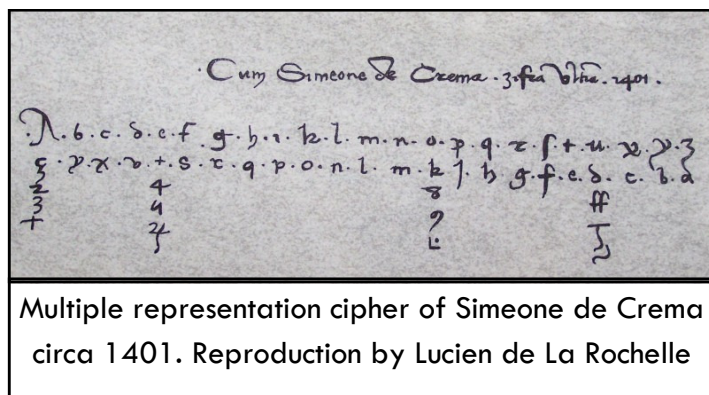 · Cum Simeone de Crema · 3 · fea · 1401 ·
· A · b · c · d · e · f · g · h · i · k · l · m · n · o · p · q · r · ſ · t · u · x · y · z
z · y · x · v · t · s · r · q · p · o · n · l · m · k · j · h · g · f · e · d · c · b · a
2 4 8
3 4 9 ff
+ 4
Multiple representation cipher of Simeone de Crema
circa 1401. Reproduction by Lucien de La Rochelle